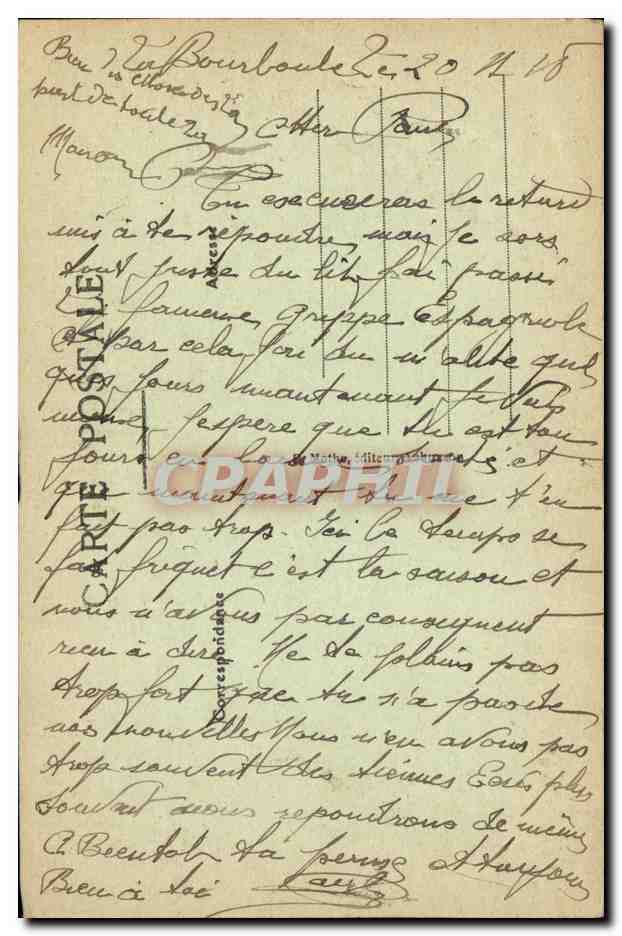 La Bourboule le 20 11 18
Bien des choses de la
part de toute la
Maison
Cher Paul
Tu excuseras le retard
mis à te répondre, mais je sors
tout juste du lit, j'ai passé
la fameuse Grippe Espagnole
et par cela j'ai du m'alité quel
ques jours maintenant je vais
mieux, j'espère que tu est tou
jours en bonne santé et
que maintenant tu ne t'en
fait pas trop. Ici le temps se
fait frisquet c'est la saison et
nous n'avons par conséquent
rien à dire. Ne te plains pas
trop fort que tu n'a pas de
nos nouvelles Nous n'en avons pas
trop souvent des tiennes Ecris plus
souvent nous repondrons de même
A Bientot ta perme et toujours
Bien à toi Paul
CARTE POSTALE
Adresse
Correspondance
CPAPHIL